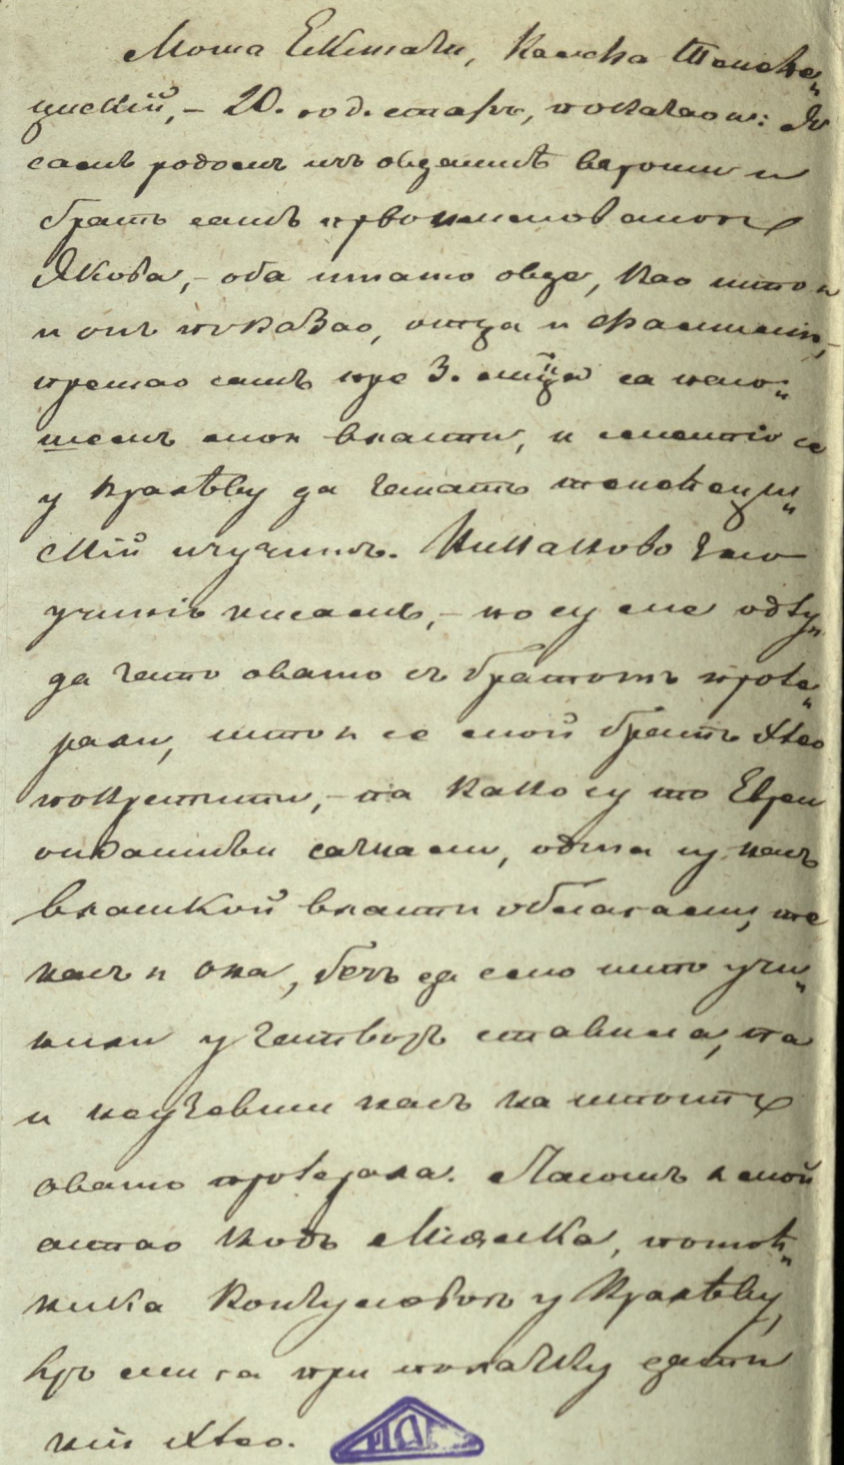 Моша Екенази, Калфа Тенеке„
џискій,– 20. год. старъ, показао и: Я
самъ родомъ изъ овдашнѣ вароши и
братъ самъ првоименованогъ
Якова,– оба имамо овде, као што
и онъ показао, отца и фамилію,–
прешао самъ пре 3. мц̃а са пасо„
шемъ мое власти, и смѣстіо се
у Кралѣву да занатъ тенекеџи„
скій изучимъ. Никаково зло
учиніо нисамъ,– но су ме одту„
да често овамо съ братомъ проте„
рали, што се мой братъ хтео
покрестити,– па како су то Евреи
ондашньи сазнали, одма су насъ
влашкой власти облагали, те
насъ и она, безъ да смо што учи„
нили у затворъ ставила, па
и неузевши насъ на испитъ
овамо протерала. Пасошъ є мой
остао кодъ Мидика, помоћ„
ника Конзуловогъ у Кралѣву,
єръ ми га при поласку дати
ніє хтео.